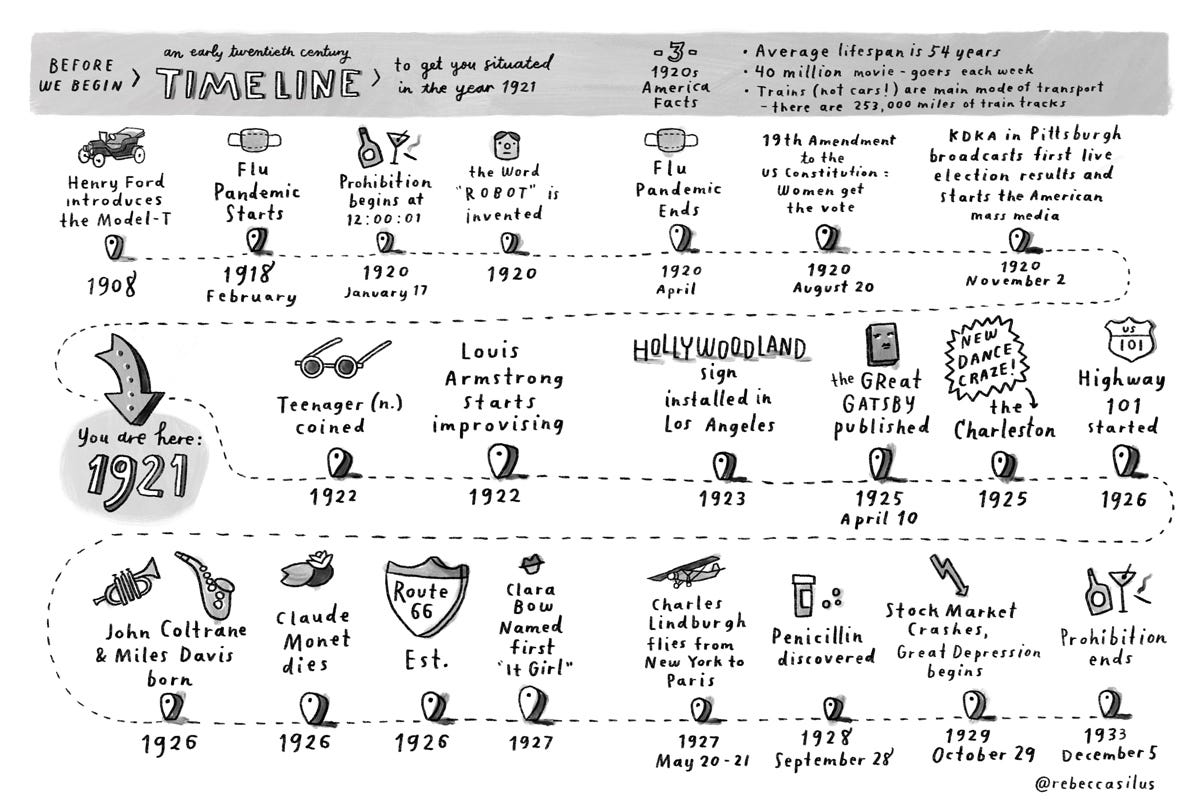 BEFORE
WE BEGIN >
an early twentieth century
TIMELINE >
to get you situated
in the year 1921
-3-
1920s
America
Facts
• Average lifespan is 54 years
• 40 million movie-goers each week
• Trains (not cars!) are main mode of transport
- there are 253,000 miles of train tracks
Henry Ford
introduces
the Model-T
1908
Flu
Pandemic
Starts
1918
February
Prohibition
begins at
12:00:01
1920
January 17
the Word
"ROBOT" is
invented
1920
Flu
Pandemic
Ends
1920
April
19th Amendment
to the
US Constitution:
Women get
the vote
1920
August 20
KDKA in Pittsburgh
broadcasts first live
election results and
starts the American
mass media
1920
November 2
You are here:
1921
Teenager (n.)
coined
1922
Louis
Armstrong
starts
improvising
1922
HOLLYWOODLAND
sign
installed in
Los Angeles
1923
the GReat
GATSBY
published
1925
April 10
NEW
DANCE
CRAZE!
the
Charleston
1925
US
101
Highway
101
started
1926
John Coltrane
& Miles Davis
born
1926
Claude
Monet
dies
1926
Route
66
Est.
1926
Clara
Bow
Named
first
"It Girl"
1927
Charles
Lindburgh
flies from
New York to
Paris
1927
May 20-21
Penicillin
discovered
1928
September 28
Stock Market
Crashes,
Great Depression
begins
1929
October 29
Prohibition
ends
1933
December 5
@rebeccasilus